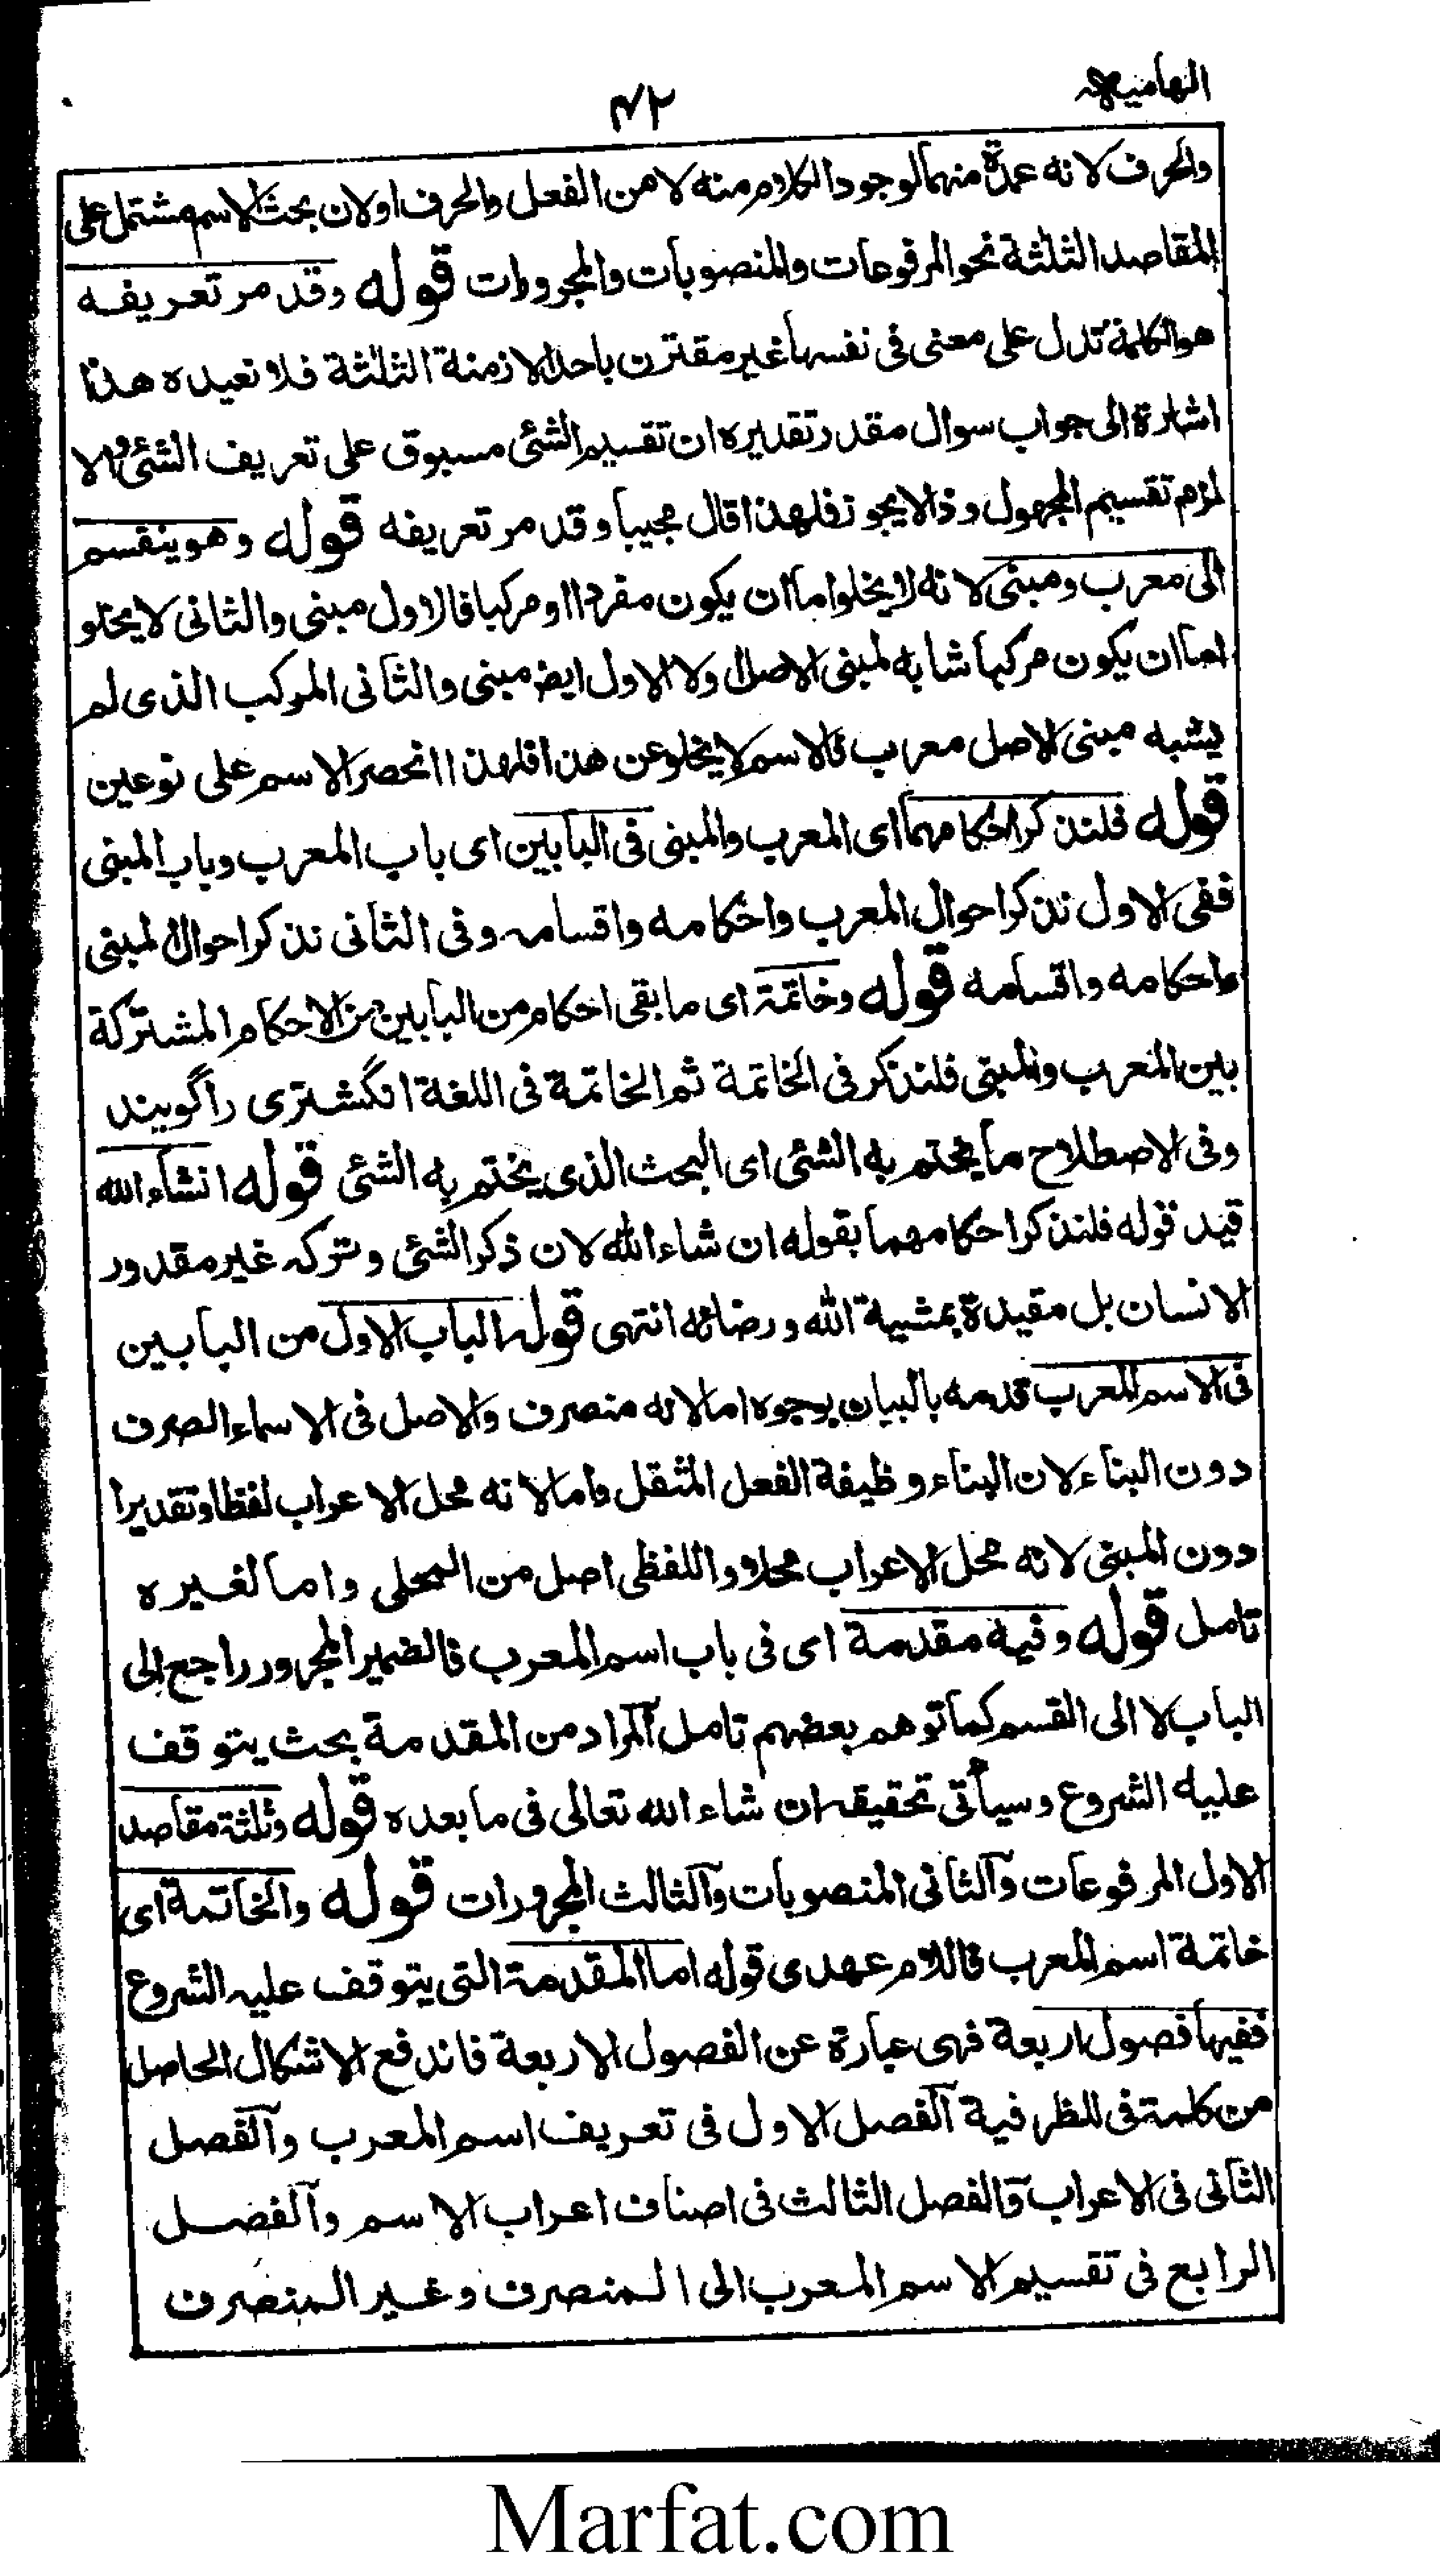 الهامیه
۴۲
والحرف لانه عمدة منهما لوجود الکلام منه لا من الفعل والحرف اولان بحث الاسم مشتمل علی
المقاصد الثلثة نحو المرفوعات والمنصوبات والمجرورات قوله وقد مر تعریفه
هو الکلمة تدل علی معنی فی نفسها غیر مقترن باحد الازمنة الثلثة فلا نعیده هذا
اشارة الی جواب سوال مقدر تقدیره ان تقسیم الشئی مسبوق علی تعریف الشئی والا
لزم تقسیم المجهول وذا لایجوز فلهذا قال مجیبا وقد مر تعریفه قوله وهو ینقسم
الی معرب ومبنی لانه لا یخلوا اما ان یکون مفردا او مرکبا فالاول مبنی والثانی لا یخلو
اما ان یکون مرکبا شابه لمبنی الاصل اولا الاول ایضا مبنی والثانی المرکب الذی لم
یشبه مبنی الاصل معرب فالاسم لا یخلو عن هذا فلهذا انحصر الاسم علی نوعین
قوله فلنذکر احکامهما ای المعرب والمبنی فی البابین ای باب المعرب وباب المبنی
ففی الاول نذکر احوال المعرب واحکامه واقسامه وفی الثانی نذکر احوال المبنی
واحکامه واقسامه قوله وخاتمة ای ما بقی احکام من البابین من الاحکام المشترکة
بین المعرب والمبنی فلنذکر فی الخاتمة ثم الخاتمة فی اللغة انگشتری را گویند
وفی الاصطلاح ما یختم به الشئی ای البحث الذی یختم به الشئی قوله انشاء الله
قید قوله فلنذکر احکامهما بقوله ان شاء الله لان ذکر الشئی وترکه غیر مقدور
الانسان بل مقیدة بمشیة الله ورضائه انتهی قوله الباب الاول من البابین
فی الاسم المعرب قدمه بالبیان بوجوه اما لانه منصرف والاصل فی الاسماء الصرف
دون البناء لان البناء وظیفة الفعل المثقل واما لانه محل الاعراب لفظا وتقدیرا
دون المبنی لانه محل الاعراب محلا واللفظی اصل من المحلی واما لغیره
تامل قوله وفیه مقدمة ای فی باب اسم المعرب فالضمیر المجرور راجع الی
الباب لا الی القسم کما توهم بعضهم تامل المراد من المقدمة بحث یتوقف
علیه الشروع وسیأتی تحقیقه ان شاء الله تعالی فی ما بعده قوله وثلثة مقاصد
الاول المرفوعات والثانی المنصوبات والثالث المجرورات قوله والخاتمة ای
خاتمة اسم المعرب فاللام عهدی قوله اما المقدمة التی یتوقف علیه الشروع
ففیها فصول اربعة فهی عبارة عن الفصول الاربعة فاندفع الاشکال الحاصل
من کلمة فی للظرفیة الفصل الاول فی تعریف اسم المعرب والفصل
الثانی فی الاعراب والفصل الثالث فی اصناف اعراب الاسم والفصل
الرابع فی تقسیم الاسم المعرب الی المنصرف وغیر المنصرف
Marfat.com